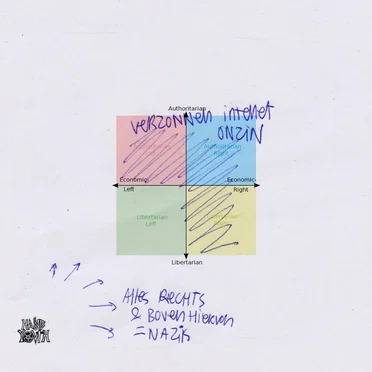 Authoritarian
VERZONNEN internet
ONZIN
Authoritarian
Right
Economic-
Left
Economic-
Right
Libertarian
Left
Libertarian
Alles RECHTS
& BOVEN Hiervan
= NAZIS